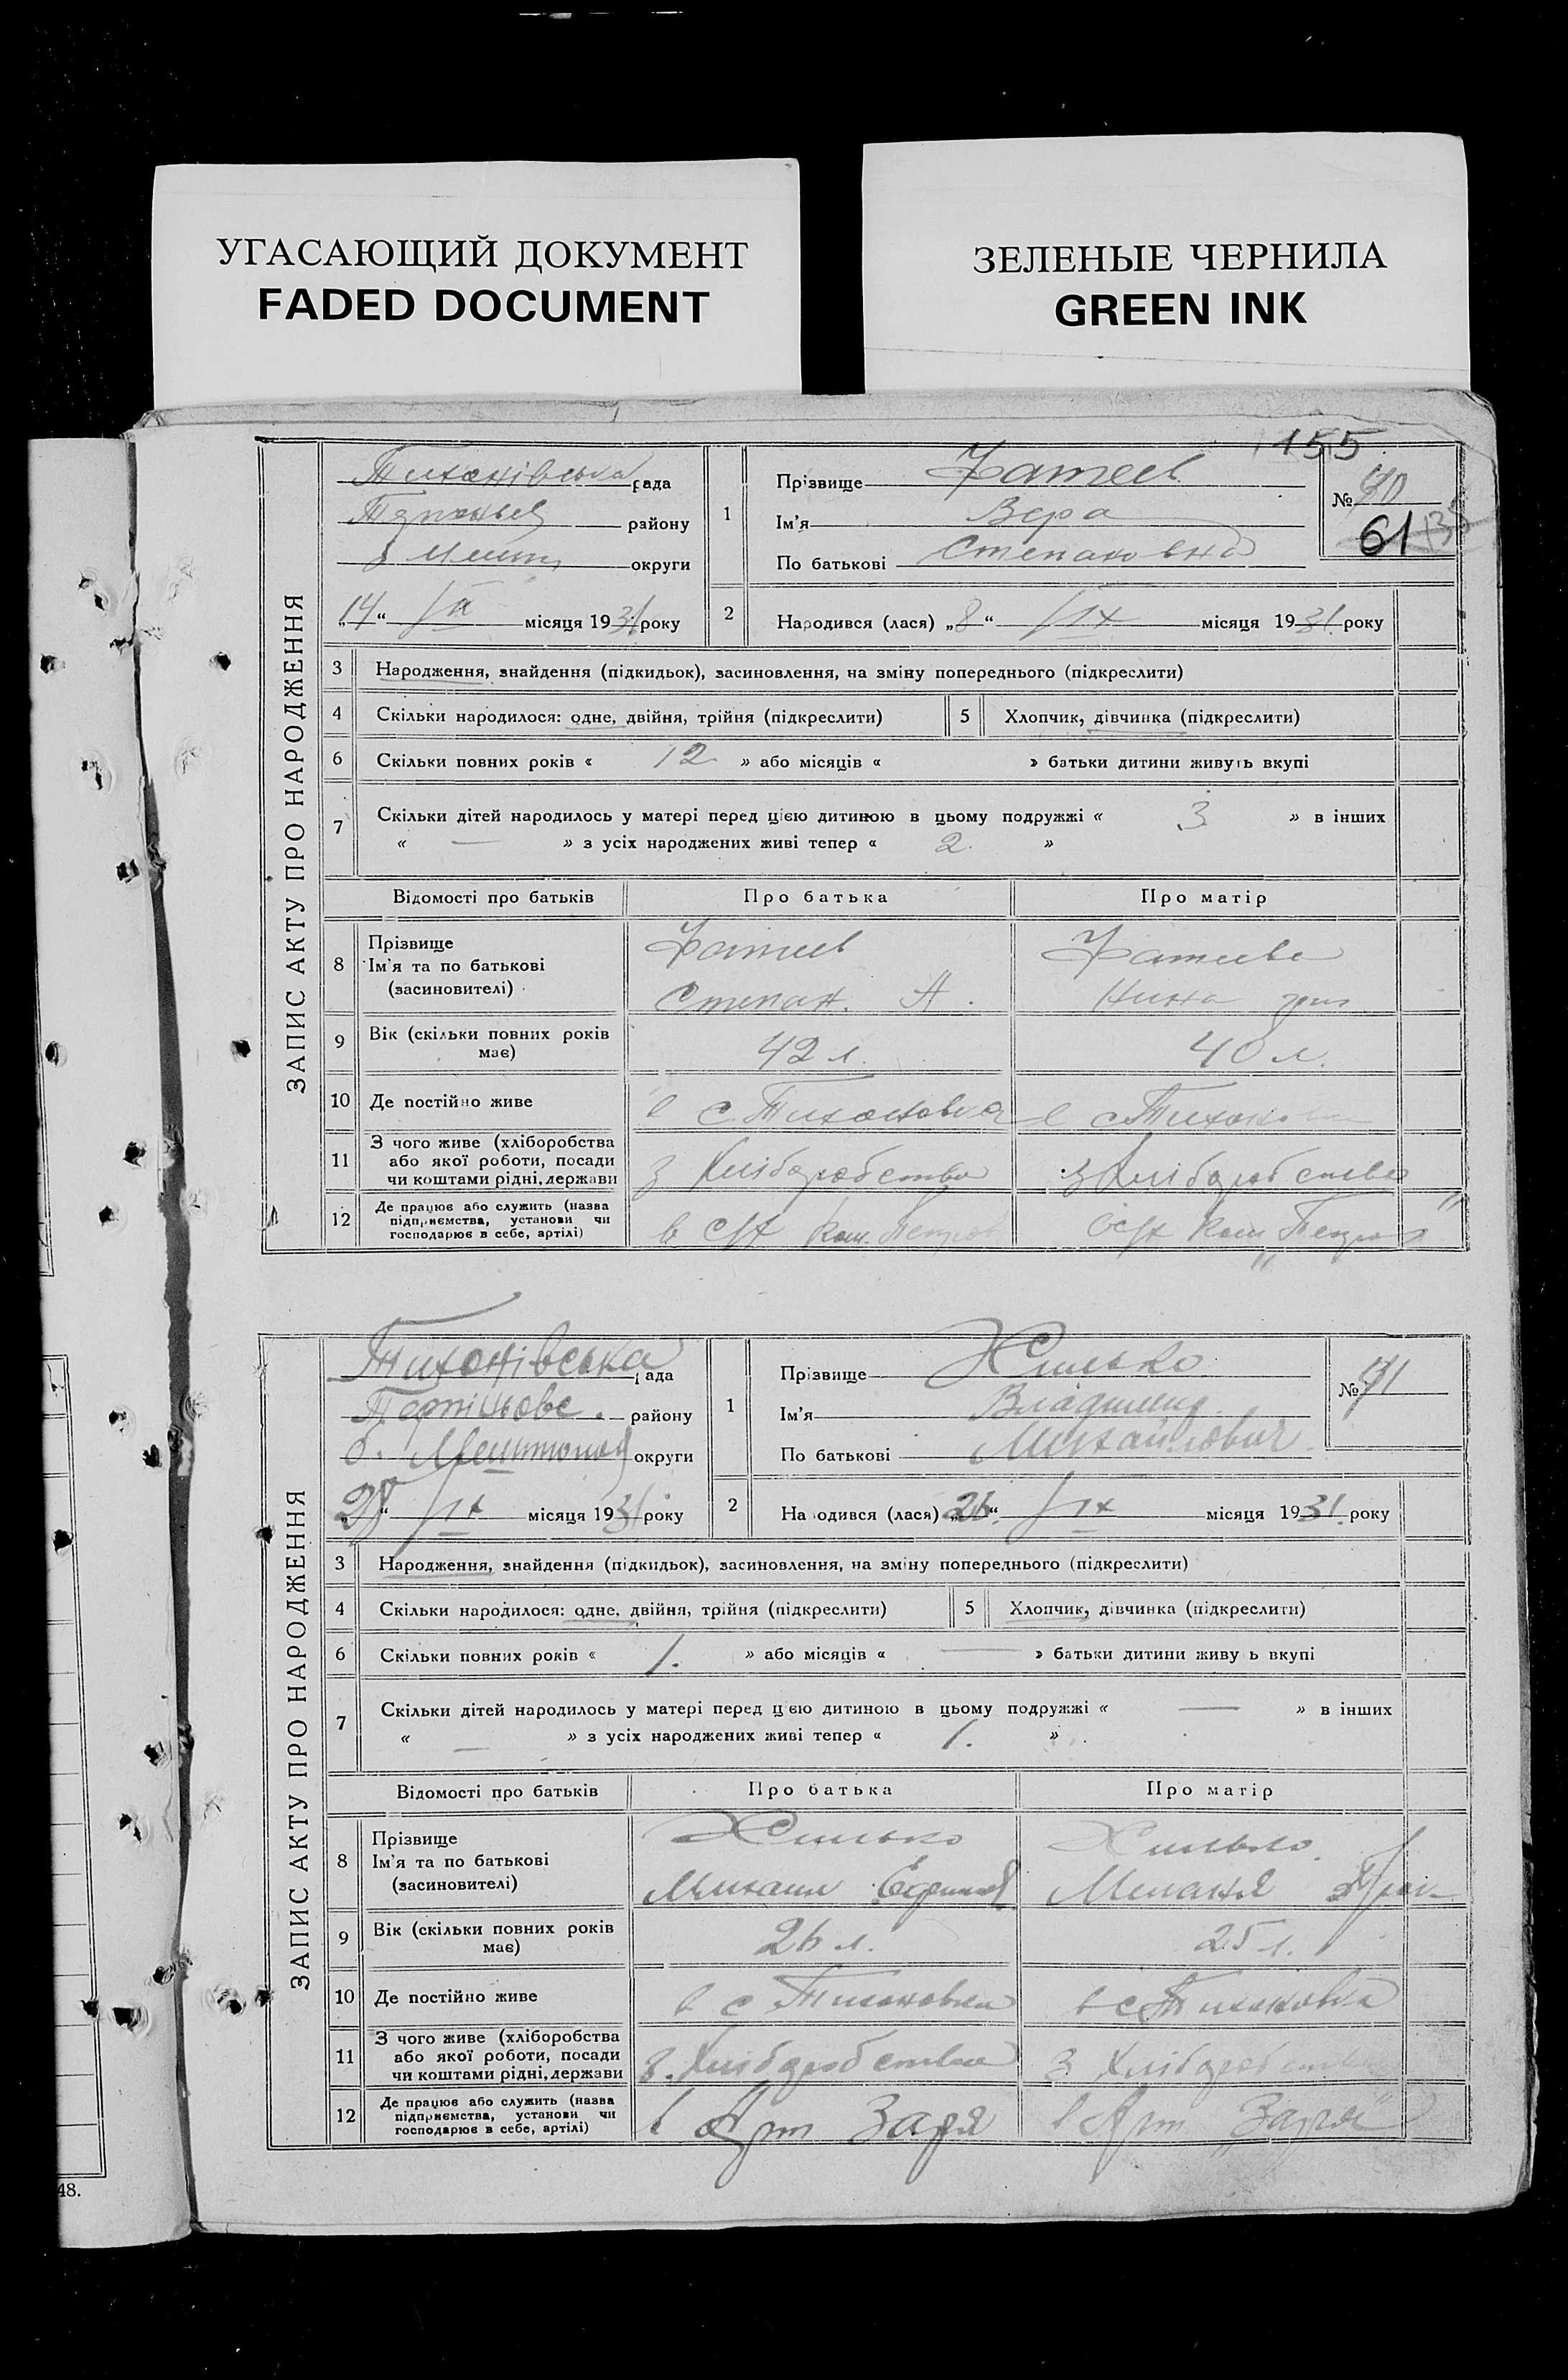 УГАСАЮЩИЙ ДОКУМЕНТ
FADED DOCUMENT
ЗЕЛЕНЫЕ ЧЕРНИЛА
GREEN INK
155
ЗАПИС АКТУ ПРО НАРОДЖЕННЯ
Тихонівська рада
району
округи
„14“ IX місяця 1931 року
1
Прізвище Фатеев
Ім'я Вера
По батькові Степановна
№ 70
61
2
Народився (лася) „8“ IX місяця 1931 року
3 Народження, знайдення (підкидьок), засиновлення, на зміну попереднього (підкреслити)
4 Скільки народилося: одне, двійня, трійня (підкреслити) 5 Хлопчик, дівчинка (підкреслити)
6 Скільки повних років « 12 » або місяців « » батьки дитини живуть вкупі
7 Скільки дітей народилось у матері перед цією дитиною в цьому подружжі « 3 » в інших
« — » з усіх народжених живі тепер « 2. »
Відомості про батьків Про батька Про матір
8 Прізвище Ім'я та по батькові (засиновителі)
Фатеев Фатеева
Степан. А. Нина
9 Вік (скільки повних років має) 42 л. 40 л.
10 Де постійно живе в с. Тихоновка в с Тихонов
11 З чого живе (хліборобства або якої роботи, посади чи коштами рідні, держави з Хліборобства з Хліборобства
12 Де працює або служить (назва підприємства, установи чи господарює в себе, артілі) в с/х ком. Петров с/х Ком „Петров“
ЗАПИС АКТУ ПРО НАРОДЖЕННЯ
Тихонівська рада
району
б. округи
„28“ IX місяця 1931 року
1
Прізвище Хилько
Ім'я Владимир.
По батькові Михайлович
№ 71
2
Народився (лася) „26“ IX місяця 1931 року
3 Народження, знайдення (підкидьок), засиновлення, на зміну попереднього (підкреслити)
4 Скільки народилося: одне, двійня, трійня (підкреслити) 5 Хлопчик, дівчинка (підкреслити)
6 Скільки повних років « 1. » або місяців « — » батьки дитини живу ь вкупі
7 Скільки дітей народилось у матері перед цією дитиною в цьому подружжі « — » в інших
« — » з усіх народжених живі тепер « 1. »
Відомості про батьків Про батька Про матір
8 Прізвище Ім'я та по батькові (засиновителі)
Хилько Хилько.
Михаил Ефимов Мелания
9 Вік (скільки повних років має) 26 л. 25 л.
10 Де постійно живе в с Тихоновка в с Тихоновка
11 З чого живе (хліборобства або якої роботи, посади чи коштами рідні, держави з. Хліборобства з Хліборобства
12 Де працює або служить (назва підприємства, установи чи господарює в себе, артілі) в Арт Заря в Арт „Заря“
48.